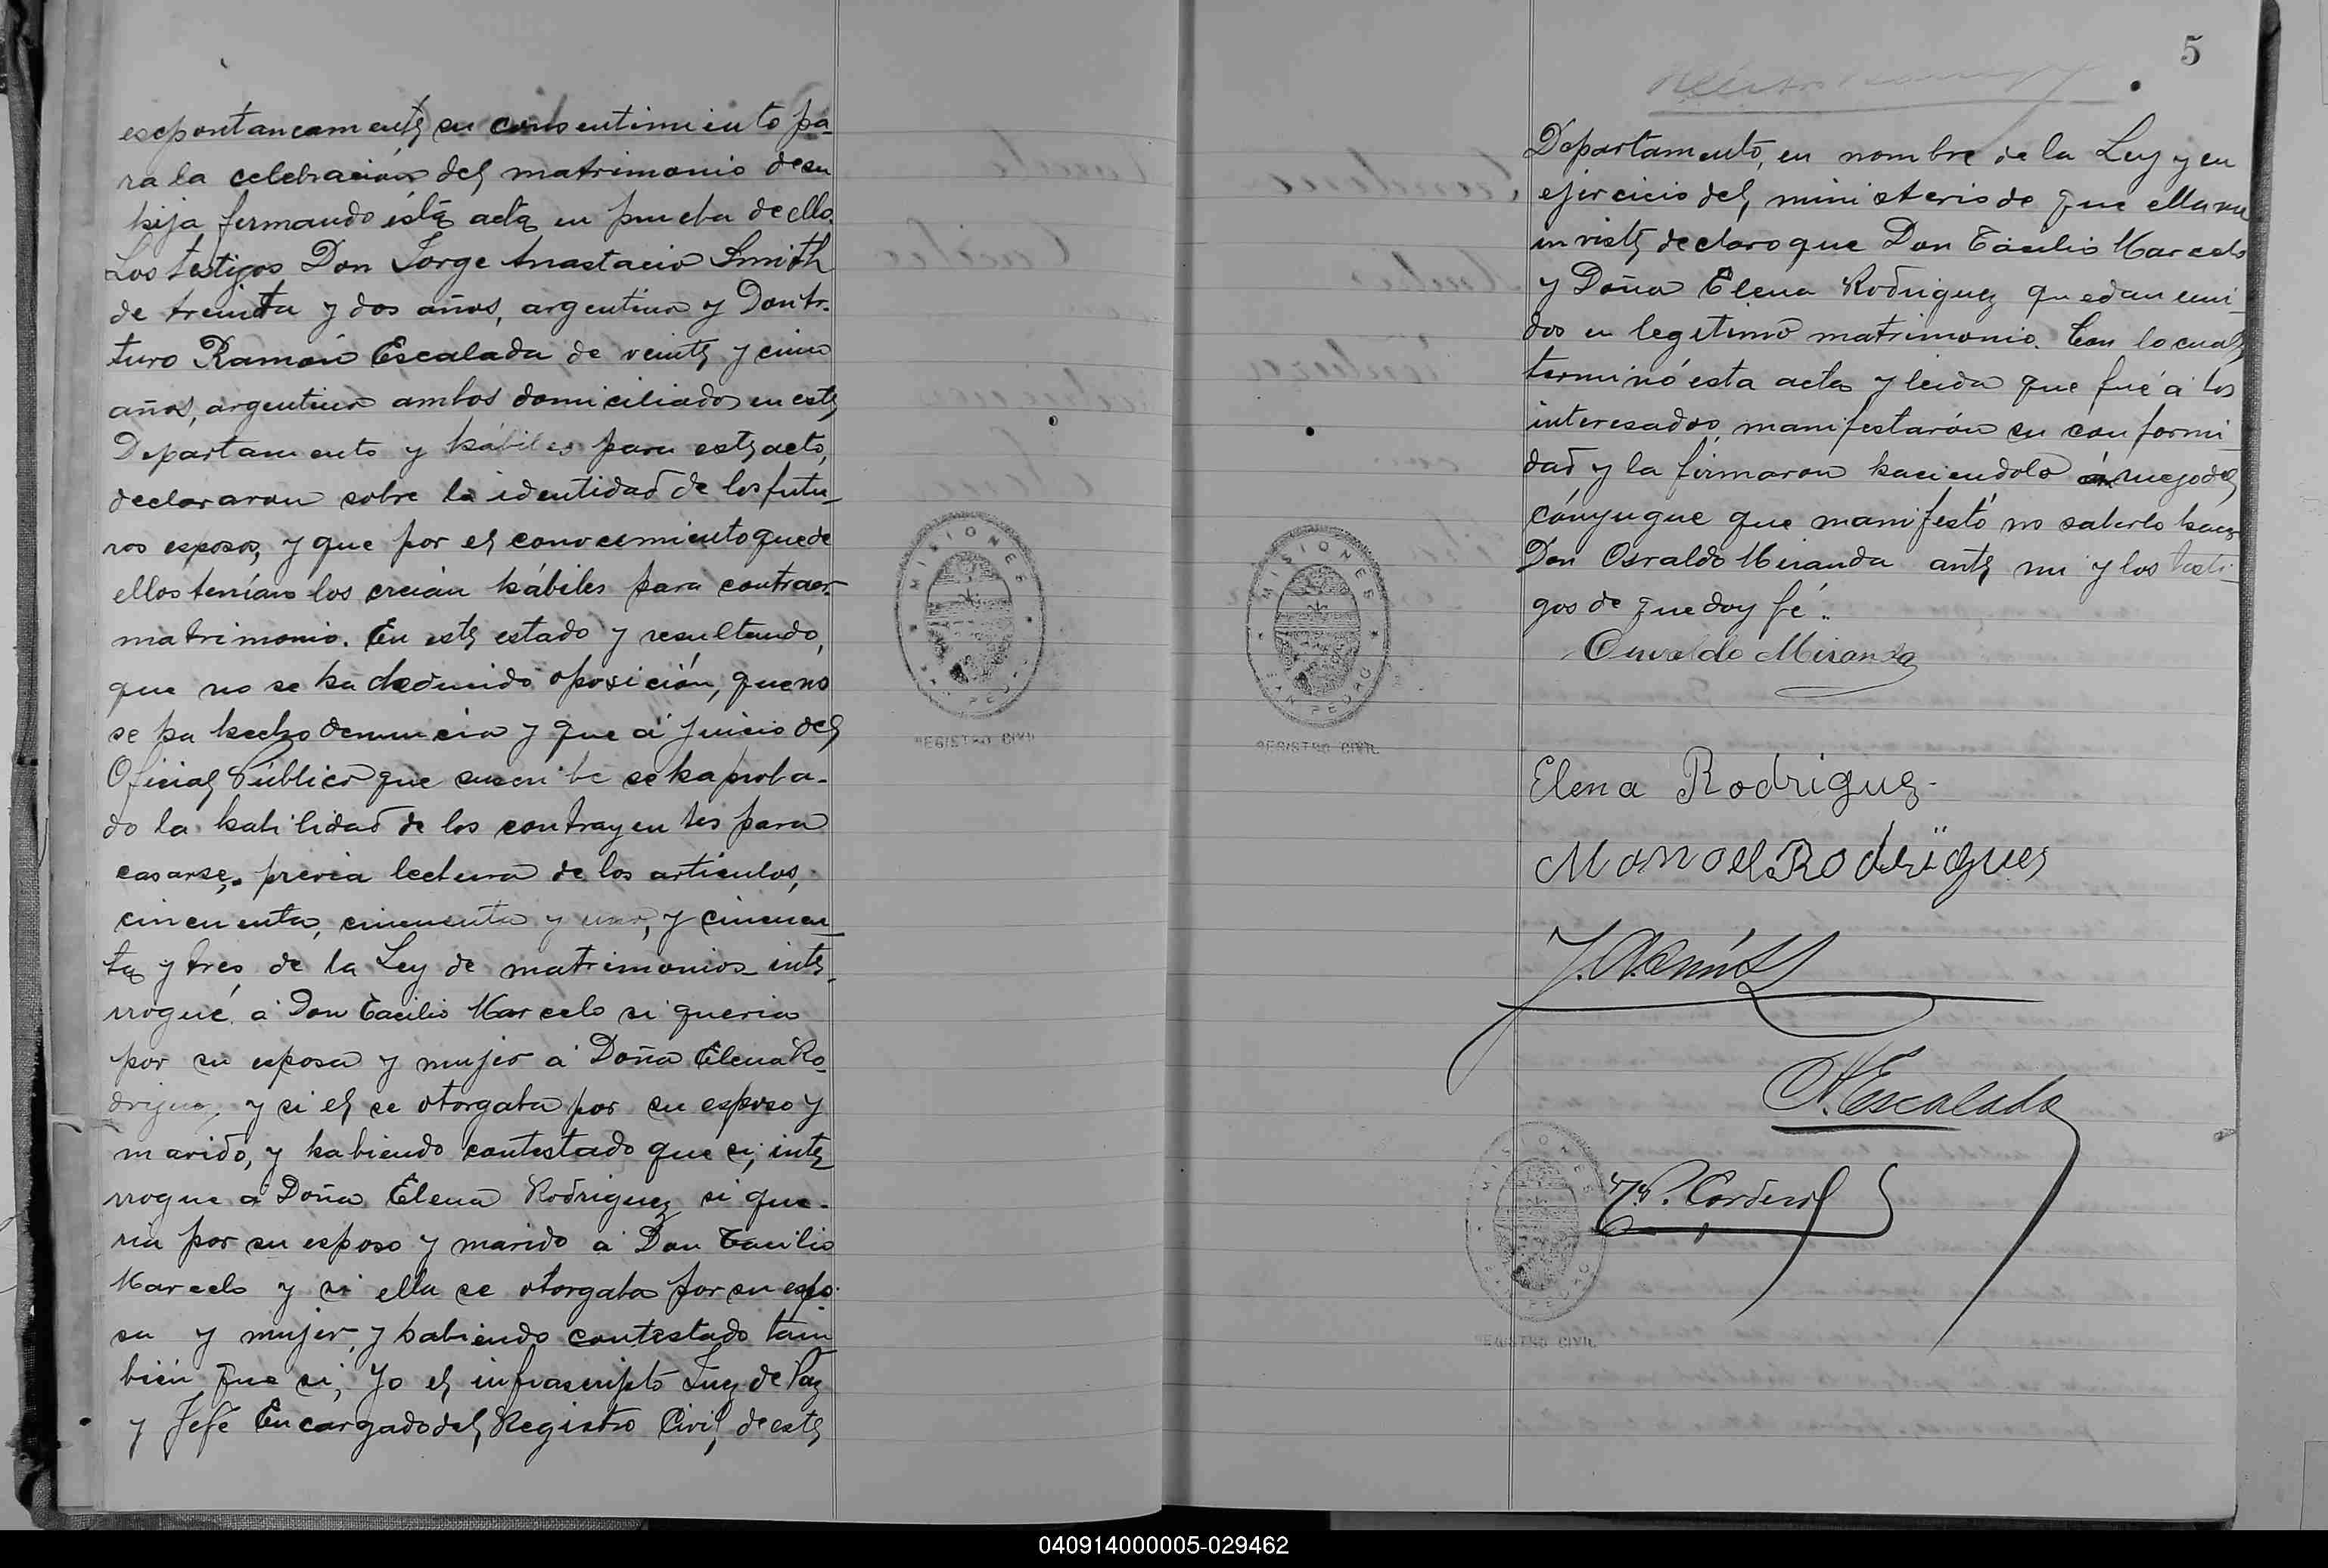 escpontaneamente su consentimiento pa-
ra la celebración del matrimonio de su
hija fermando ésta acta en prueba de ello.
Los testigos Don Jorge Anastacio Smith
de treinta y dos años, argentino y Don Ar-
turo Ramón Escalada de veinte y cinco
años, argentino ambos domiciliados en este
Departamento y hábiles para este acto,
declararon sobre la identidad de los futu-
ros esposos, y que por el conocimiento que de
ellos tenían los creían hábiles para contraer
matrimonio. En este estado y resultando,
que no se ha deducido oposición, que no
se ha hecho denuncia y que á juicio del
Oficial Público que suscribe se ha proba-
do la habilidad de los contrayentes para
casarse, previa lectura de los artículos,
cincuenta, cincuenta y uno, y cincuen-
ta y tres, de la Ley de matrimonios inte-
rrogué á Don Cacilio Marcelo si queria
por su esposa y mujer á Doña Elena Ro-
driguez, y si el se otorgaba por su esposo y
marido, y habiendo contestado que si, inte-
rrogue á Doña Elena Rodriguez si que-
ria por su esposo y marido á Don Cacilio
Marcelo y si ella se otorgaba por su espo-
sa y mujer, y habiendo contestado tam
bién que si, Yo el infrascripto Juez de Paz
y Jefe Encargado del Registro Civil de este
MISIONES
SAN PEDRO
REGISTRO CIVIL
5
Departamento, en nombre de la Ley y en
ejercicio del ministerio de que ella me
inviste declaro que Don Cacilio Marcelo
y Doña Elena Rodriguez quedan uni-
dos en legitimo matrimonio. Con lo cual
terminó esta acta y leida que fué á los
interesados, manifestarón su conformi
dad y la firmaron haciendolo á ruego del
cónyugue que manifestó no saberlo hacer
Don Osvaldo Miranda ante mi y los testi-
gos de que doy fé.
Osvaldo Miranda
Elena Rodriguez
Manoel Rodrigues
J. A. Smith
A. Escalada
MISIONES
SAN PEDRO
REGISTRO CIVIL
Cordero
MISIONES
SAN PEDRO
REGISTRO CIVIL
040914000005-029462